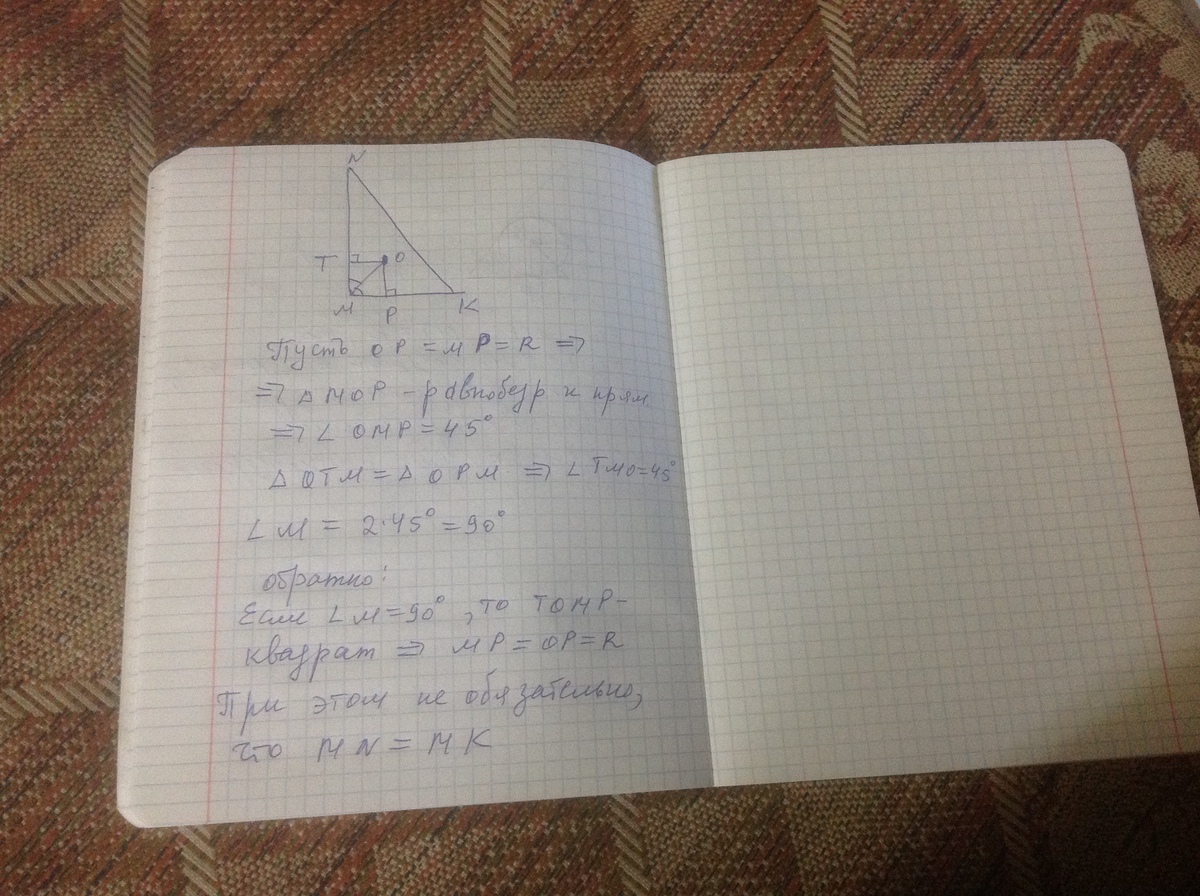 N
T O
M P K
Пусть OP = MP = R ⇒
⇒ △ MOP - равнобедр и прям.
⇒ ∠ OMP = 45°
△ OTM = △ OPM ⇒ ∠ TMO = 45°
∠ M = 2·45° = 90°
обратно:
Если ∠ M = 90°, то TOMP -
квадрат ⇒ MP = OP = R
При этом не обязательно,
что MN = MK